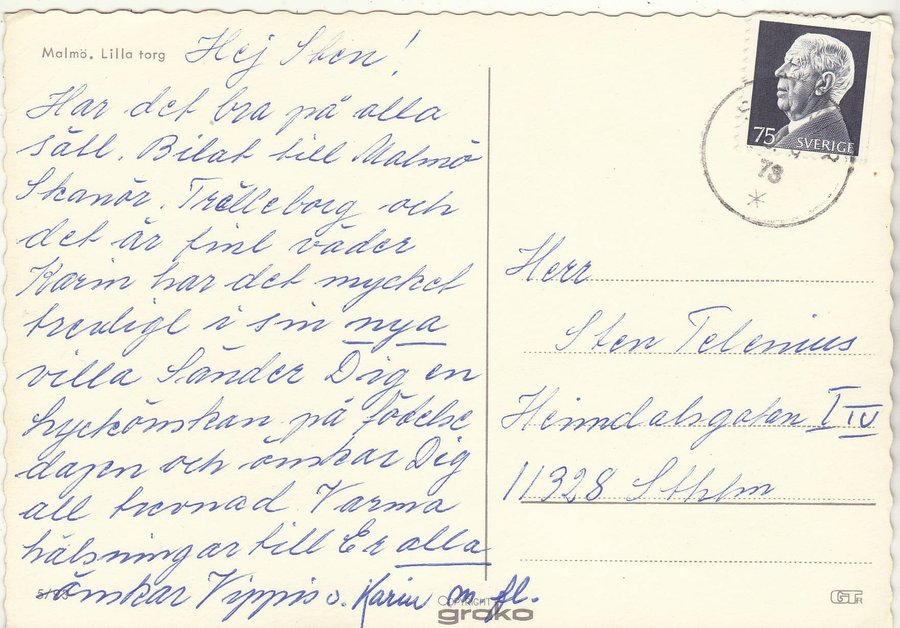 Malmö. Lilla torg
Hej Sten!
Har det bra på alla
sätt. Bilat till Malmö
Skanör. Trelleborg och
det är fint väder
Karin har det mycket
trevligt i sin nya
villa Sänder Dig en
lyckönskan på födelse
dagen och önskar Dig
all trevnad Varma
hälsningar till Er alla
önskar Vippis o. Karin m fl.
75 SVERIGE
73
Herr
Sten Telenius
Heimdalsgatan 1 IV
11328 Sthlm
COPYRIGHT
grako